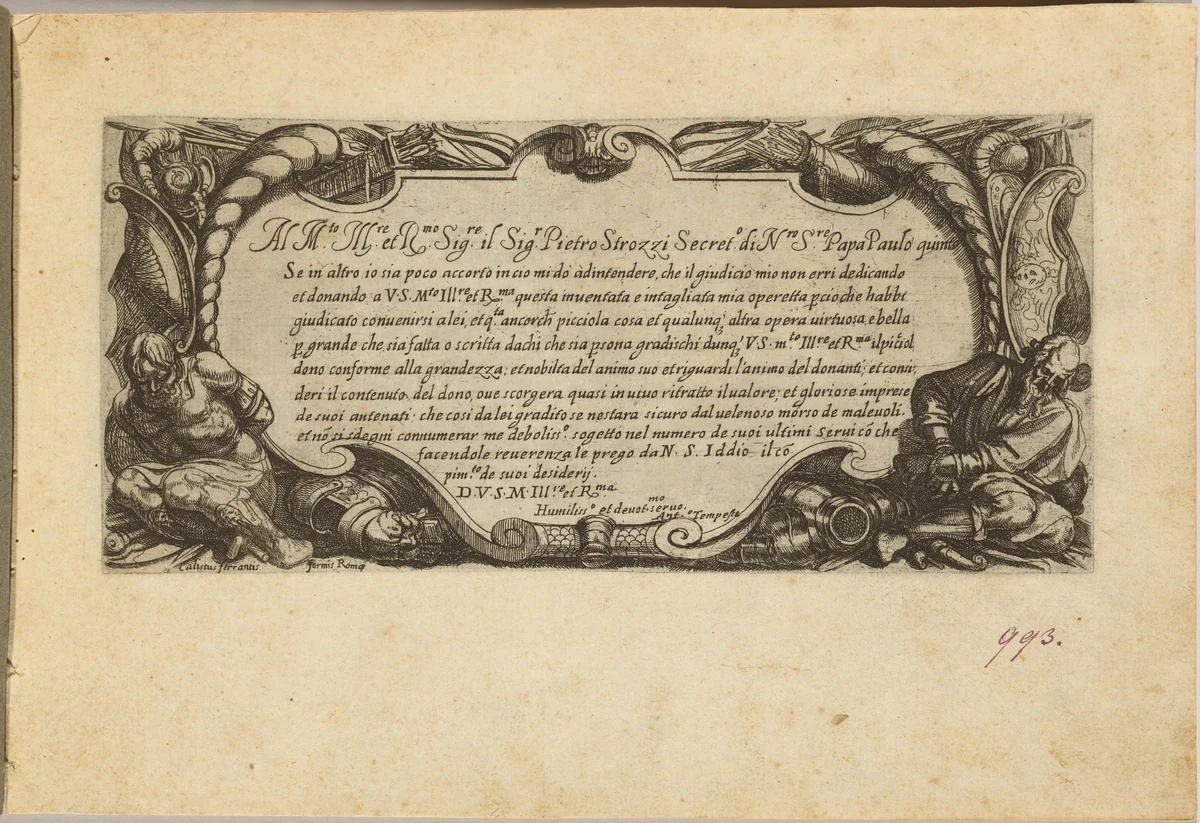 Al M.to Ill.re et R.mo Sig.re il Sig.r Pietro Strozzi Secret.o di N.ro S.re Papa Paulo quinto
Se in altro io sia poco accorto in cio mi do ad intendere, che il giudicio mio non erri dedicando
et donando a V.S. M.to Ill.re et R.ma questa inuentata e intagliata mia operetta pcioche habbi
giudicato conuenirsi a lei, et q.ta ancorch' picciola cosa et qualunq; altra opera uirtuosa, e bella
p grande che sia fatta o scritta da chi che sia psona gradischi dunq; V.S. m.to Ill.re et R.ma il picciol
dono conforme alla grandezza; et nobilta del animo suo et riguardi l'animo del donanti; et consi;
deri il contenuto del dono, oue scorgera quasi in uiuo ritratto il ualore; et gloriose imprese
de suoi antenati; che cosi da lei gradito se nestara sicuro dal uelenoso morso de maleuoli.
et nō si sdegni connumerar me deboliss.o sogetto nel numero de suoi ultimi serui cō che
facendole reuerenza le prego da N. S. Iddio il cō
pim.to de suoi desiderij.
D.V.S.M. Ill.re et R.ma
Humiliss.o et deuot.mo seruo.
Ant.o Tempesta
Calistus ferrantis formis Romę
993.